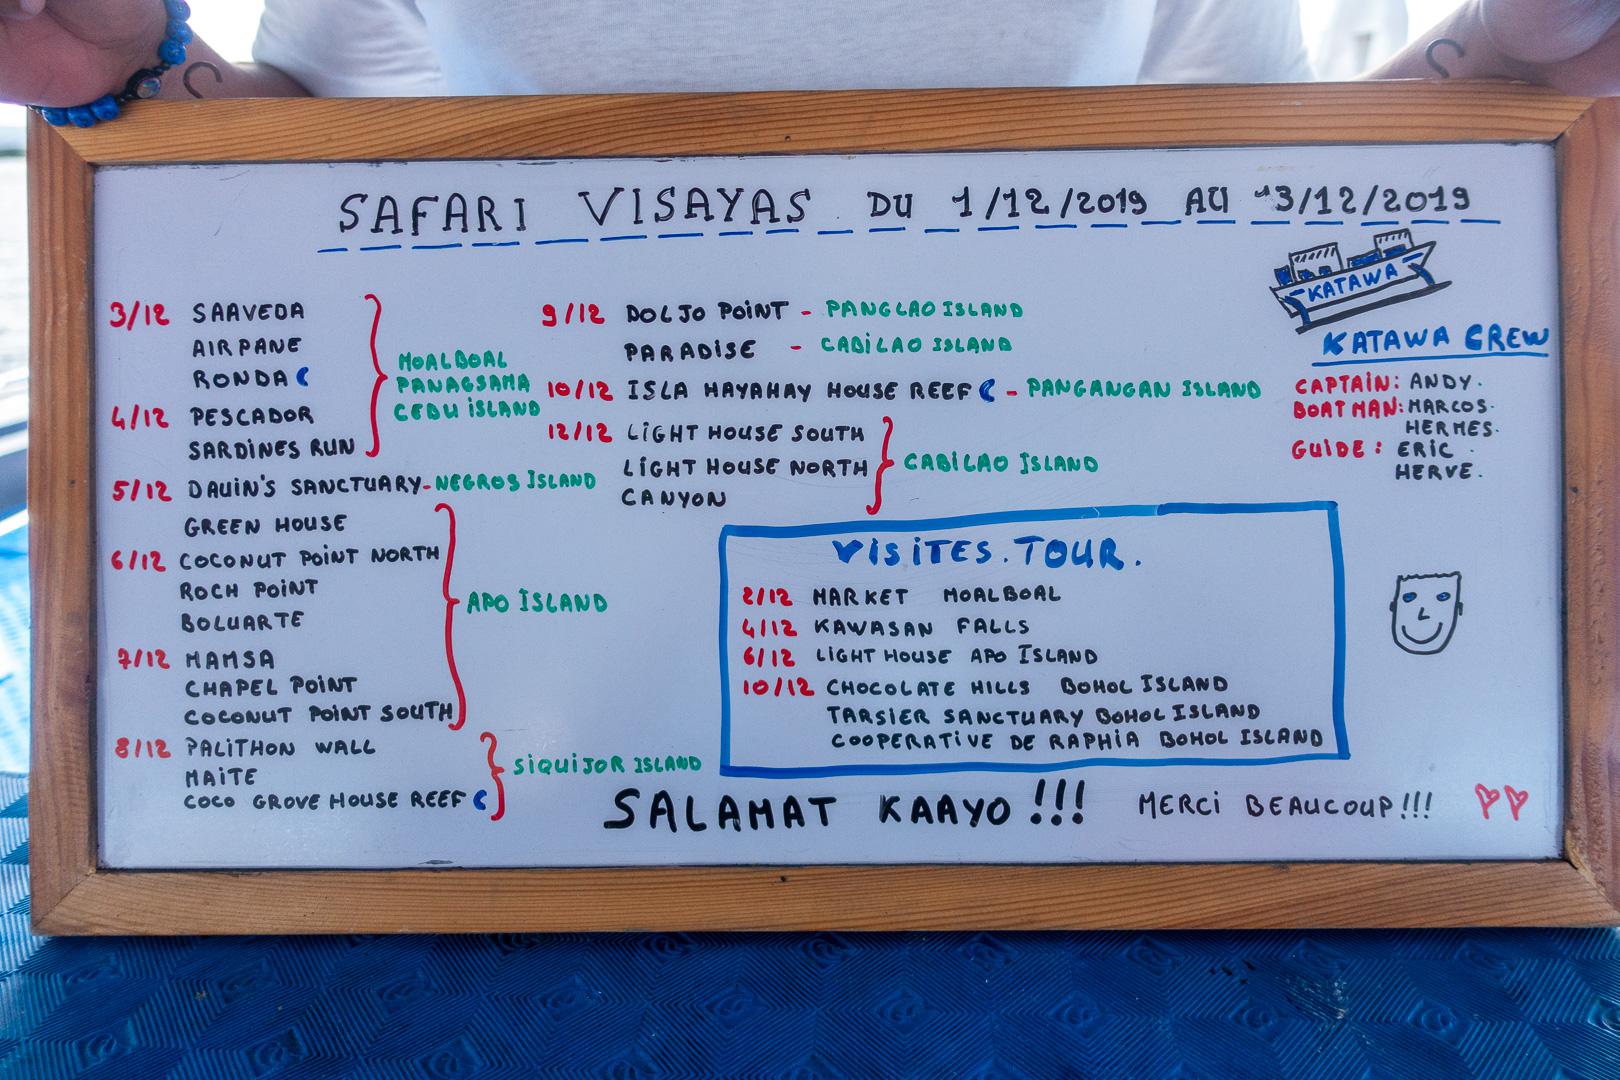 SAFARI VISAYAS DU 1/12/2019 AU 13/12/2019
3/12 SAAVEDA
AIRPANE
RONDA
4/12 PESCADOR
SARDINES RUN
MOALBOAL
PANAGSAMA
CEBU ISLAND
5/12 DAUIN'S SANCTUARY - NEGROS ISLAND
GREEN HOUSE
6/12 COCONUT POINT NORTH
ROCH POINT
BOLUARTE
7/12 MAMSA
CHAPEL POINT
COCONUT POINT SOUTH
APO ISLAND
8/12 PALITHON WALL
MAITE
COCO GROVE HOUSE REEF
SIQUIJOR ISLAND
9/12 DOLJO POINT - PANGLAO ISLAND
PARADISE - CABILAO ISLAND
10/12 ISLA HAYAHAY HOUSE REEF - PANGANGAN ISLAND
12/12 LIGHT HOUSE SOUTH
LIGHT HOUSE NORTH
CANYON
CABILAO ISLAND
KATAWA
KATAWA CREW
CAPTAIN: ANDY.
BOAT MAN: MARCOS.
HERMES.
GUIDE: ERIC.
HERVE.
VISITES.TOUR.
2/12 MARKET MOALBOAL
4/12 KAWASAN FALLS
6/12 LIGHT HOUSE APO ISLAND
10/12 CHOCOLATE HILLS BOHOL ISLAND
TARSIER SANCTUARY BOHOL ISLAND
COOPERATIVE DE RAPHIA BOHOL ISLAND
SALAMAT KAAYO !!! MERCI BEAUCOUP!!!